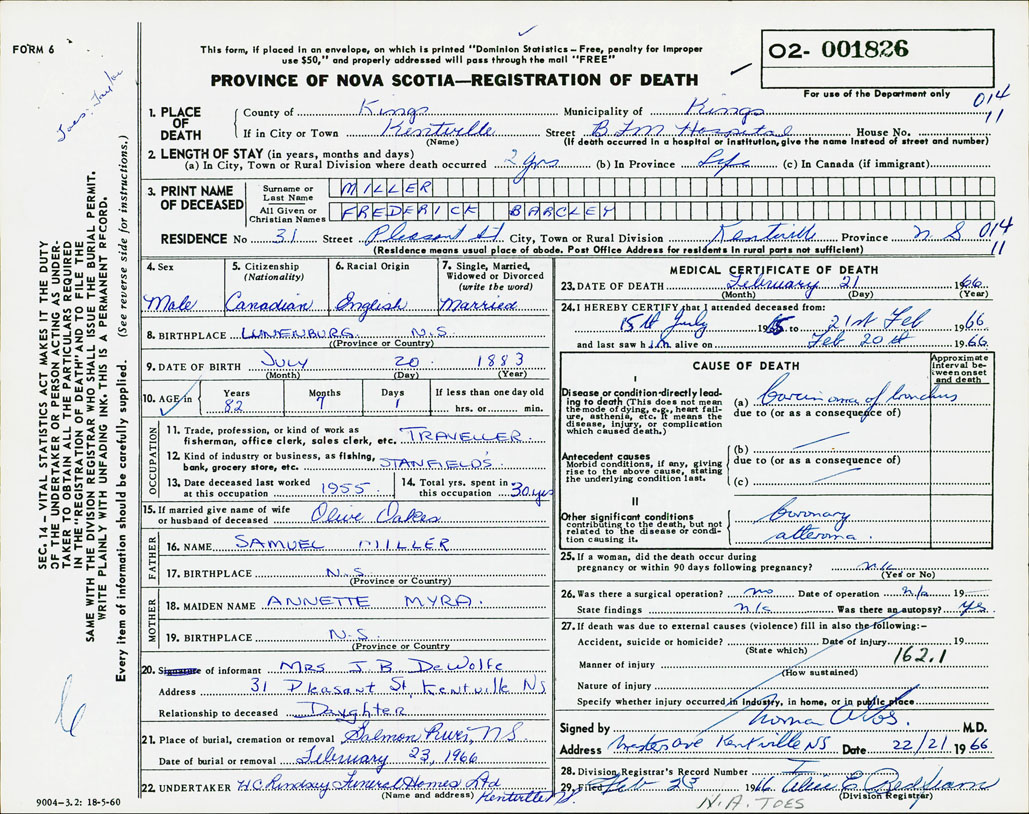 FORM 6
This form, if placed in an envelope, on which is printed "Dominion Statistics – Free, penalty for improper
use $50," and properly addressed will pass through the mail "FREE"
PROVINCE OF NOVA SCOTIA—REGISTRATION OF DEATH
02- 001826
For use of the Department only
014
11
1. PLACE OF DEATH
County of Kings Municipality of Kings
If in City or Town Kentville Street B F M Hospital House No.
(Name) (If death occurred in a hospital or institution, give the name instead of street and number)
2. LENGTH OF STAY (in years, months and days)
(a) In City, Town or Rural Division where death occurred 2 yrs (b) In Province Life (c) In Canada (if immigrant)
3. PRINT NAME OF DECEASED
Surname or Last Name MILLER
All Given or Christian Names FREDERICK BARCLEY
RESIDENCE No 31 Street Pleasant St City, Town or Rural Division Kentville Province N S 014
11
(Residence means usual place of abode. Post Office Address for residents in rural parts not sufficient)
4. Sex Male
5. Citizenship (Nationality) Canadian
6. Racial Origin English
7. Single, Married, Widowed or Divorced (write the word) Married
8. BIRTHPLACE LUNENBURG N.S.
(Province or Country)
9. DATE OF BIRTH JULY 20 1883
(Month) (Day) (Year)
10. AGE in Years 82 Months 7 Days 1 If less than one day old hrs. or min.
OCCUPATION
11. Trade, profession, or kind of work as
fisherman, office clerk, sales clerk, etc. TRAVELLER
12. Kind of industry or business, as fishing,
bank, grocery store, etc. STANFIELD'S
13. Date deceased last worked at this occupation 1955
14. Total yrs. spent in this occupation 30 yrs
15. If married give name of wife
or husband of deceased Olive Oakes
FATHER
16. NAME SAMUEL MILLER
17. BIRTHPLACE N.S.
(Province or Country)
MOTHER
18. MAIDEN NAME ANNETTE MYRA.
19. BIRTHPLACE N.S.
(Province or Country)
20. Signature of informant Mrs J. B. DeWolfe
Address 31 Pleasant St, Kentville NS
Relationship to deceased Daughter
21. Place of burial, cremation or removal Salmon River, NS
Date of burial or removal February 23, 1966
22. UNDERTAKER H.C. Lindsay Funeral Homes Ltd
(Name and address) Kentville N.S.
MEDICAL CERTIFICATE OF DEATH
23. DATE OF DEATH February 21 1966
(Month) (Day) (Year)
24. I HEREBY CERTIFY that I attended deceased from:
15th July 1965 to 21st Feb 1966
and last saw him alive on Feb 20th 1966
CAUSE OF DEATH
Approximate interval between onset and death
I
Disease or condition directly leading to death (This does not mean the mode of dying, e.g., heart failure, asthenia, etc. It means the disease, injury, or complication which caused death.)
(a) Carcinoma of bronchus
due to (or as a consequence of)
Antecedent causes
Morbid conditions, if any, giving rise to the above cause, stating the underlying condition last.
(b)
due to (or as a consequence of)
(c)
II
Other significant conditions contributing to the death, but not related to the disease or condition causing it.
Coronary
atheroma.
25. If a woman, did the death occur during
pregnancy or within 90 days following pregnancy? n/a
(Yes or No)
26. Was there a surgical operation? no Date of operation n/a 19
State findings n/a Was there an autopsy? yes
27. If death was due to external causes (violence) fill in also the following:–
Accident, suicide or homicide? Date of injury 19
(State which) 162.1
Manner of injury
(How sustained)
Nature of injury
Specify whether injury occurred in industry, in home, or in public place
Signed by Norman M.D.
Address Kentville NS Date 22/21 1966
28. Division Registrar's Record Number
29. Filed Feb 23 1966
(Division Registrar)
N.A. TOES
SEC. 14 – VITAL STATISTICS ACT MAKES IT THE DUTY
OF THE UNDERTAKER OR PERSON ACTING AS UNDER-
TAKER TO OBTAIN ALL THE PARTICULARS REQUIRED
IN THE "REGISTRATION OF DEATH" AND TO FILE THE
SAME WITH THE DIVISION REGISTRAR WHO SHALL ISSUE THE BURIAL PERMIT.
WRITE PLAINLY WITH UNFADING INK. THIS IS A PERMANENT RECORD.
Every item of information should be carefully supplied. (See reverse side for instructions.)
9004–3.2: 18-5-60